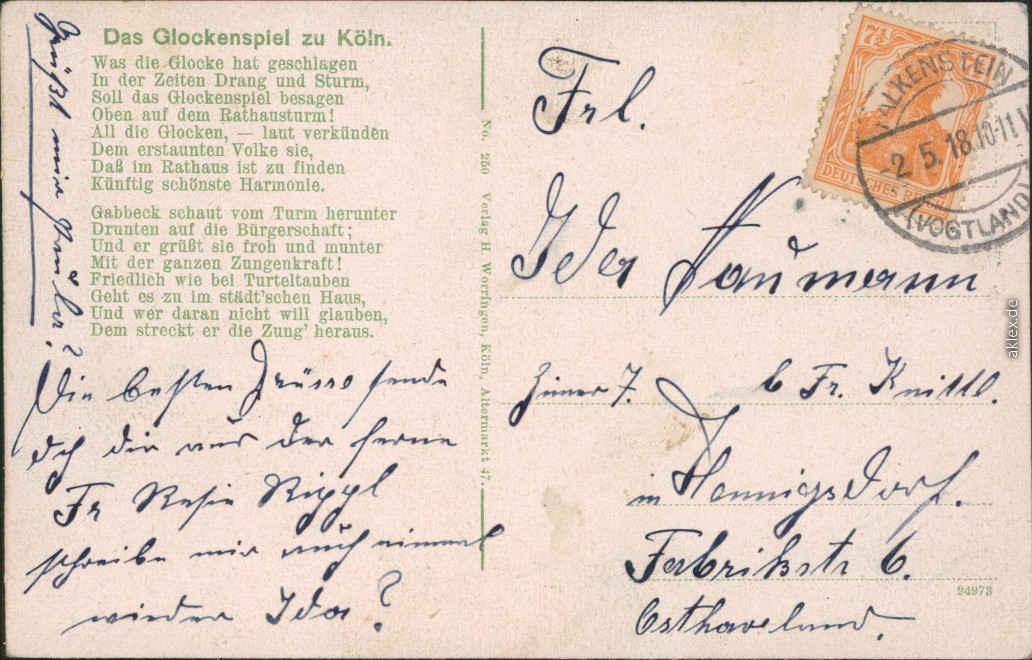 Das Glockenspiel zu Köln.
Was die Glocke hat geschlagen
In der Zeiten Drang und Sturm,
Soll das Glockenspiel besagen
Oben auf dem Rathausturm!
All die Glocken, — laut verkünden
Dem erstaunten Volke sie,
Daß im Rathaus ist zu finden
Künftig schönste Harmonie.
Gabbeck schaut vom Turm herunter
Drunten auf die Bürgerschaft;
Und er grüßt sie froh und munter
Mit der ganzen Zungenkraft!
Friedlich wie bei Turteltauben
Geht es zu im städt'schen Haus,
Und wer daran nicht will glauben,
Dem streckt er die Zung' heraus.
Die besten Grüsse sende
dir aus der ferne
Fr Resie Rippl
schreibe mir auch einmal
wieder Ida?
mir
No. 250 Verlag H. Worringen, Köln, Altermarkt 47.
7½
DEUTSCHES REICH
FALKENSTEIN
-2.5.18.10-11V
(VOGTLAND)
Frl.
Ida Naumann
Zimer 7. b Fr. Knittl.
in Hennigsdorf.
Fabrikstr 6.
Osthaveland.
24973
aklex.de